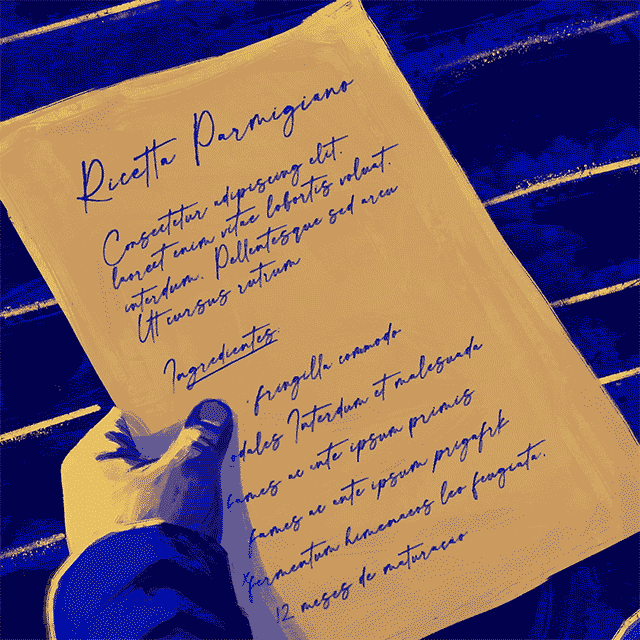 Ricetta Parmigiano
Consectetur adipiscing elit.
laoreet enim vitae lobortis volutat.
interdum. Pellentesque sed arcu
Ut cursus rutrum
Ingredientes:
· fringilla commodo
odales Interdum et malesuada
fames ac ante ipsum primis
fames ac ante ipsum prigafrk
*fermentum himenaeos leo feugiata.
12 meses de maturacao